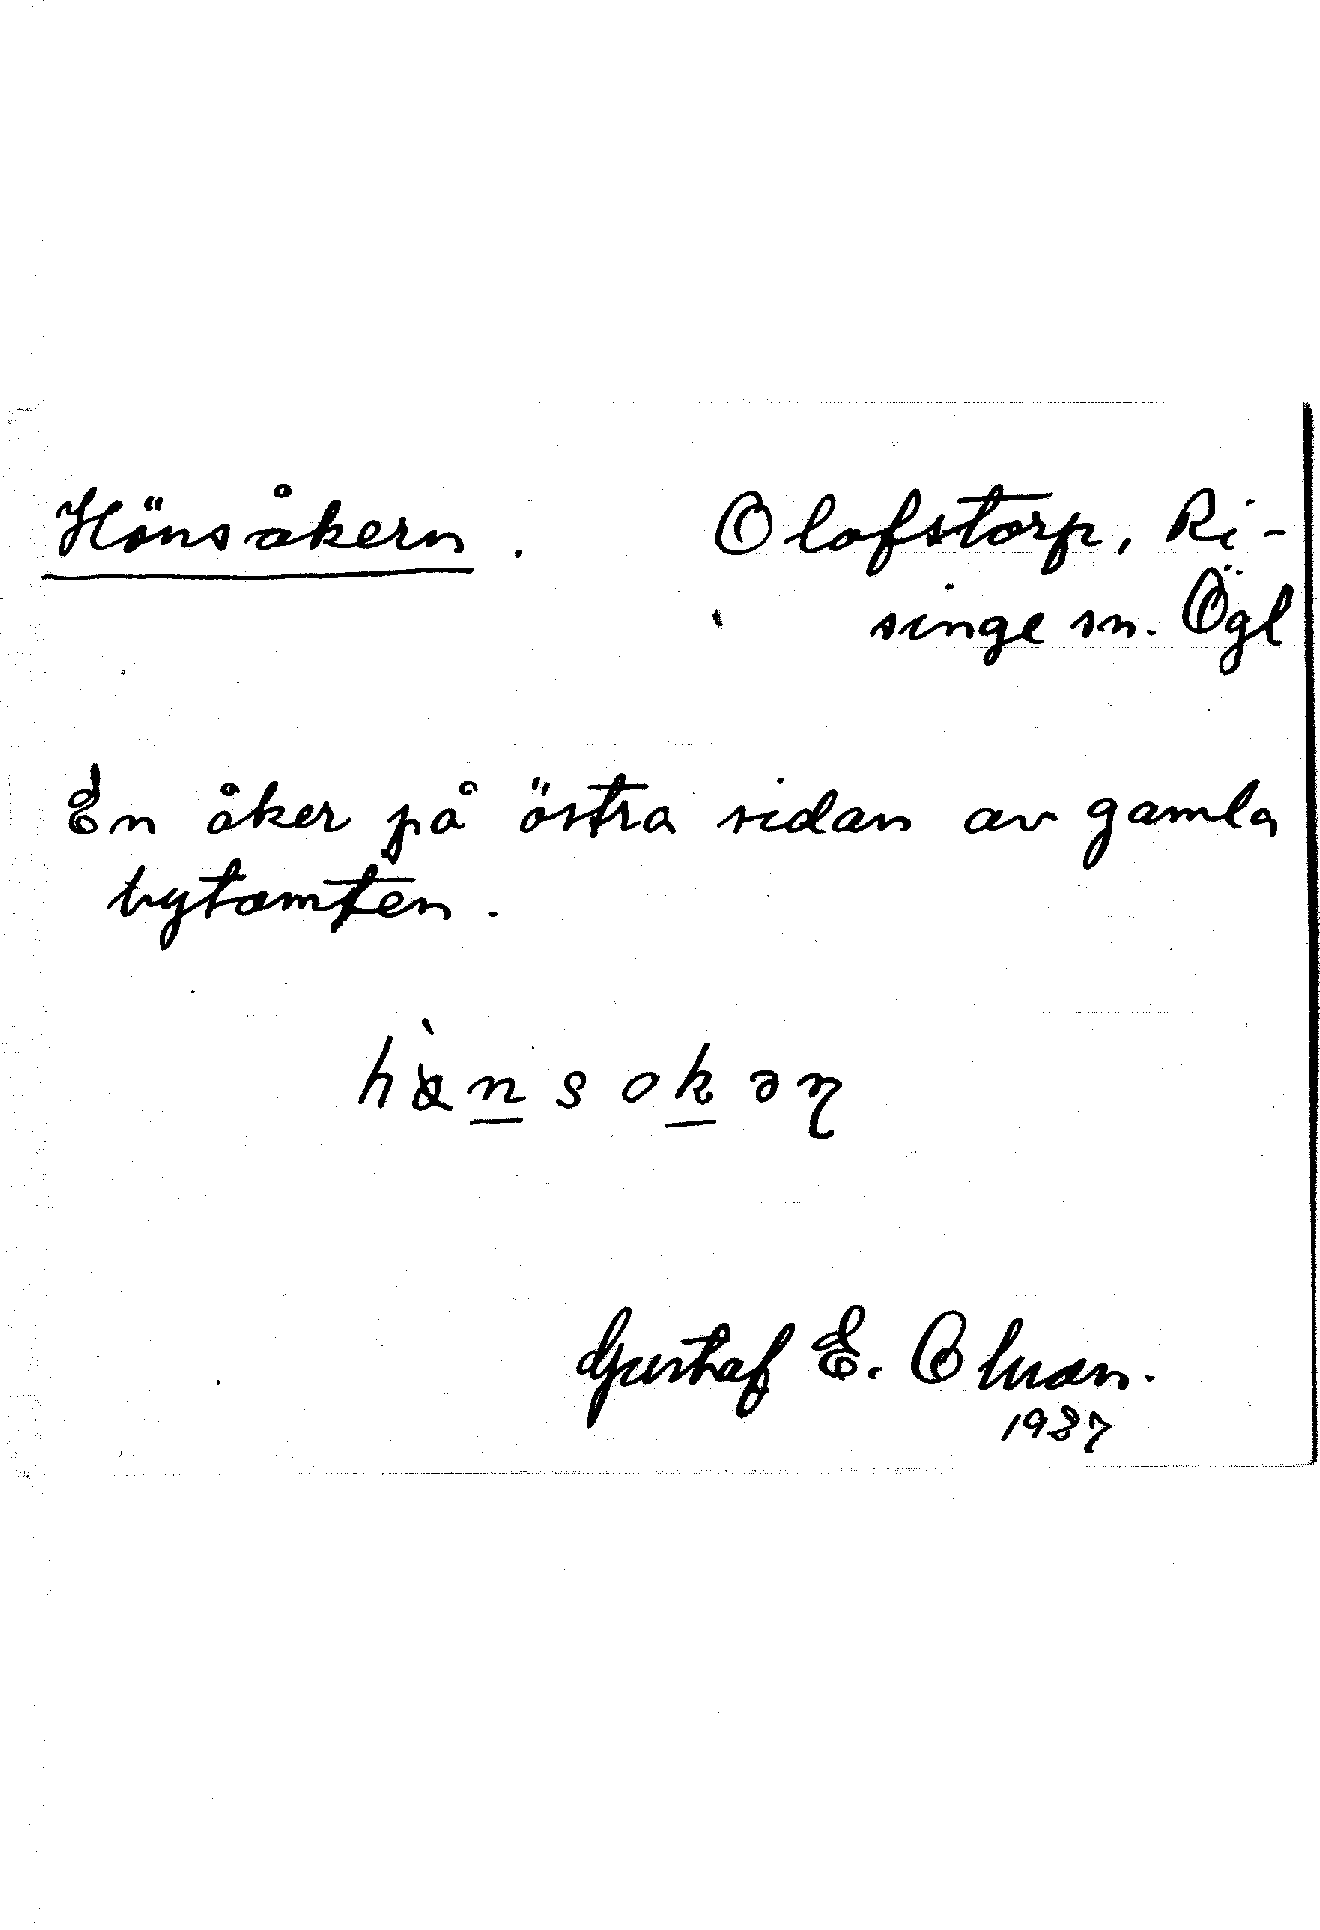 Hönsåkern. Olofstorp, Ri-
singe sn. Ögl
En åker på östra sidan av gamla
bytomten.
Gustaf E. Oluan.
1937